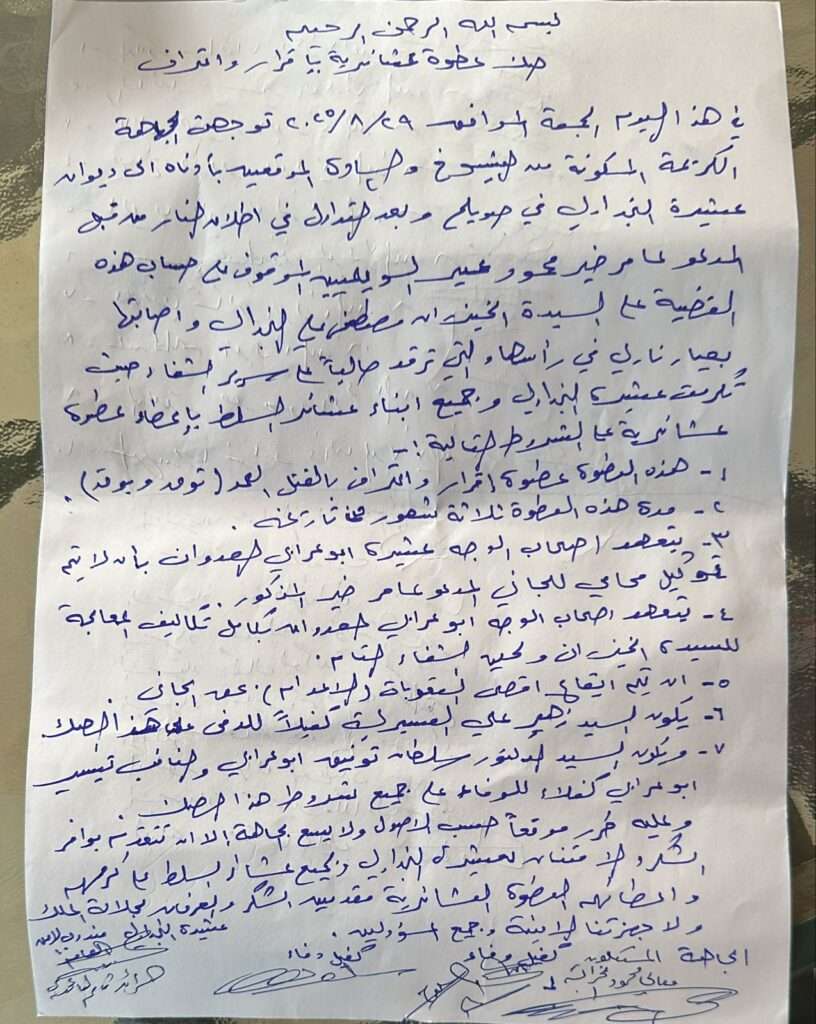 بسم الله الرحمن الرحيم
صك عطوة عشائرية بإقرار واعتراف
في هذا اليوم الجمعة الموافق ٢٠٢٥/٨/٢٩ توجهت الجاهة
الكريمة المكونة من شيوخ و الموقعين بأدناه الى ديوان
عشيرة الغزاوي في صويلح وبعد التداول في اطلاق النار من قبل
المدعو عامر خير محمود السويلميين الموقوف على حساب هذه
القضية على السيدة الخيزران مصطفى علي واصابتها
بعيار ناري في رأسها والتي ترقد حالياً على سرير الشفاء حيث
تكرمت عشيرة وجميع ابناء عشائر السلط بإعطاء عطوة
عشائرية على الشروط التالية :-
١- هذه العطوة عطوة اقرار واعتراف بالقتل العمد ( ) .
٢- مدة هذه العطوة ثلاثة شهور من تاريخه .
٣- يتعهد اصحاب الوجه عشيرة ابوعرابي العدوان بأن لا يتم
توكيل محامي للجاني المدعو عامر خير المذكور .
٤- يتعهد اصحاب الوجه ابوعرابي العدوان بكامل تكاليف المعالجة
للسيدة الخيزران ولحين الشفاء التام .
٥- ان يتم ايقاع اقصى العقوبات (الاعدام) بحق الجاني .
٦- يكون السيد زهير علي كفيلاً للدفى على هذا الصك .
٧- ويكون السيد الدكتور سلطان توفيق ابوعرابي والنائب تيسير
ابوعرابي كفلاء للوفاء على جميع شروط هذا الصك .
وعليه حرر موقعاً حسب الاصول ولا يسع الجاهة الا ان تتقدم بوافر
الشكر والامتنان لعشيرة ولجميع عشائر السلط على كرمهم
واعطائهم العطوة العشائرية مقدمين الشكر والعرفان لجلالة الملك
ولاجهزتنا الامنية وجميع المسؤولين .
عشيرة
الجاهة
كفيل وفاء
كفيل دفاء
معالي محمود